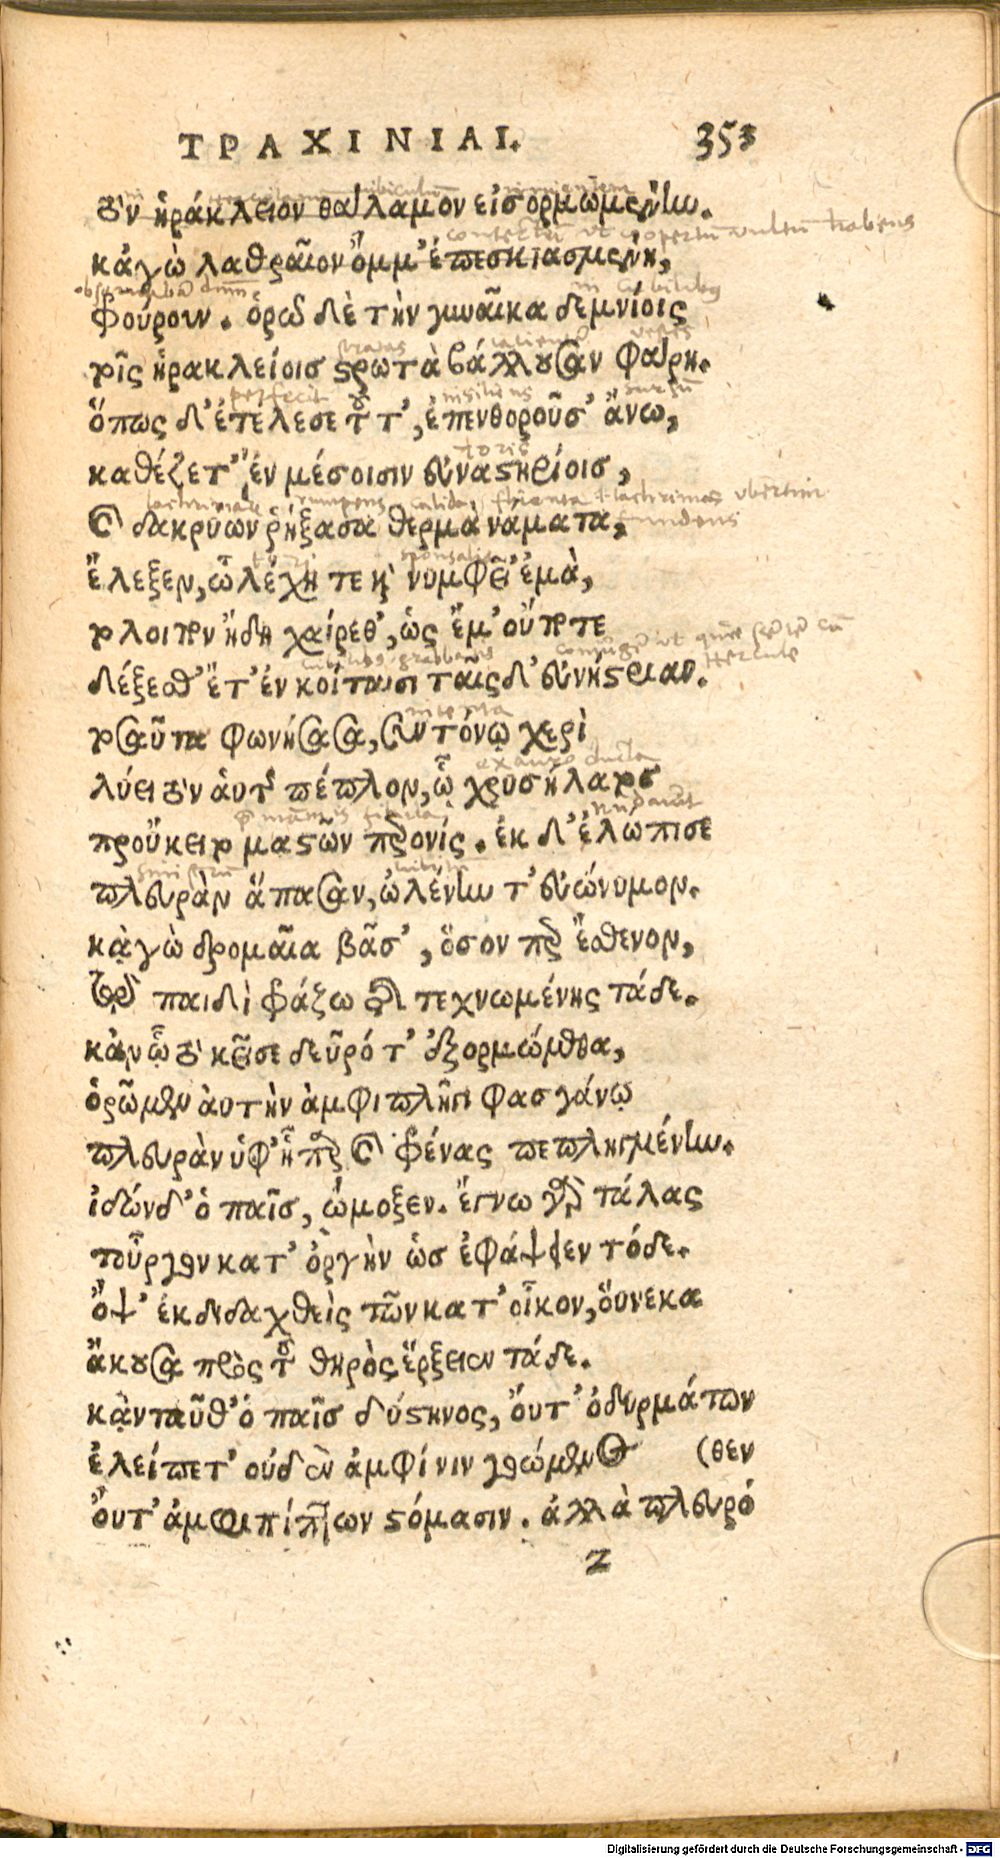 ΤΡΑΧΙΝΙΑΙ. 353
τὸν ἡράκλειον θάλαμον εἰσορμωμένην.
κἀγὼ λαθραῖον ὄμμ' ἐπεσκιασμένη,
φρούρουν. ὁρῶ δὲ τὴν γυναῖκα δεμνίοις
τοῖς ἡρακλείοισ στρωτὰ βάλλουσαν φάρη.
ὅπως δ' ἐτέλεσε τοῦτ', ἐπενθοροῦσ' ἄνω,
καθέζετ' ἐν μέσοισιν εὐναστηρίοισ,
καὶ δακρύων ῥήξασα θερμὰ νάματα,
ἔλεξεν, ὦ λέχη τε καὶ νυμφεῖ' ἐμὰ,
τὸ λοιπὸν ἤδη χαίρεθ', ὡς ἔμ' οὔποτε
δέξεσθ' ἔτ' ἐν κοίταισι ταῖσδ' εὐνήστριαν.
τοσαῦτα φωνήσασα, συντόνῳ χερὶ
λύει τὸν αὑτῆς πέπλον, ᾧ χρυσήλατος
προὔκειτο μαστῶν περονίς. ἐκ δ' ἐλώπισε
πλευρὰν ἅπασαν, ὠλένην τ' εὐώνυμον.
κᾀγὼ δρομαία βᾶσ', ὅσον περ ἔσθενον,
τῷ παιδὶ φράζω τῆς τεχνωμένης τάδε.
κἀν ᾧ τὸ κεῖσε δεῦρό τ' ἐξορμώμεθα,
ὁρῶμεν αὐτὴν ἀμφιπλῆγι φασγάνῳ
πλευρὰν ὑφ' ἧπαρ καὶ φρένας πεπληγμένην.
ἰδὼν δ' ὁ παῖσ, ᾤμοξεν. ἔγνω γὰρ τάλας
τοὖργον κατ' ὀργὴν ὡσ ἐφάψειεν τόδε.
ὄψ' ἐκδιδαχθεὶς τῶν κατ' οἶκον, οὕνεκα
ἄκουσα πρὸς τοῦ θηρὸς ἔρξειεν τάδε.
κᾀνταῦθ' ὁ παῖσ δύστηνος, οὔτ' ὀδυρμάτων
ἐλείπετ' οὐδὲν ἀμφί νιν γοώμενος (θεν
οὔτ' ἀμφιπίπτων στόμασιν. ἀλλὰ πλευρό
z
Digitalisierung gefördert durch die Deutsche Forschungsgemeinschaft - DFG